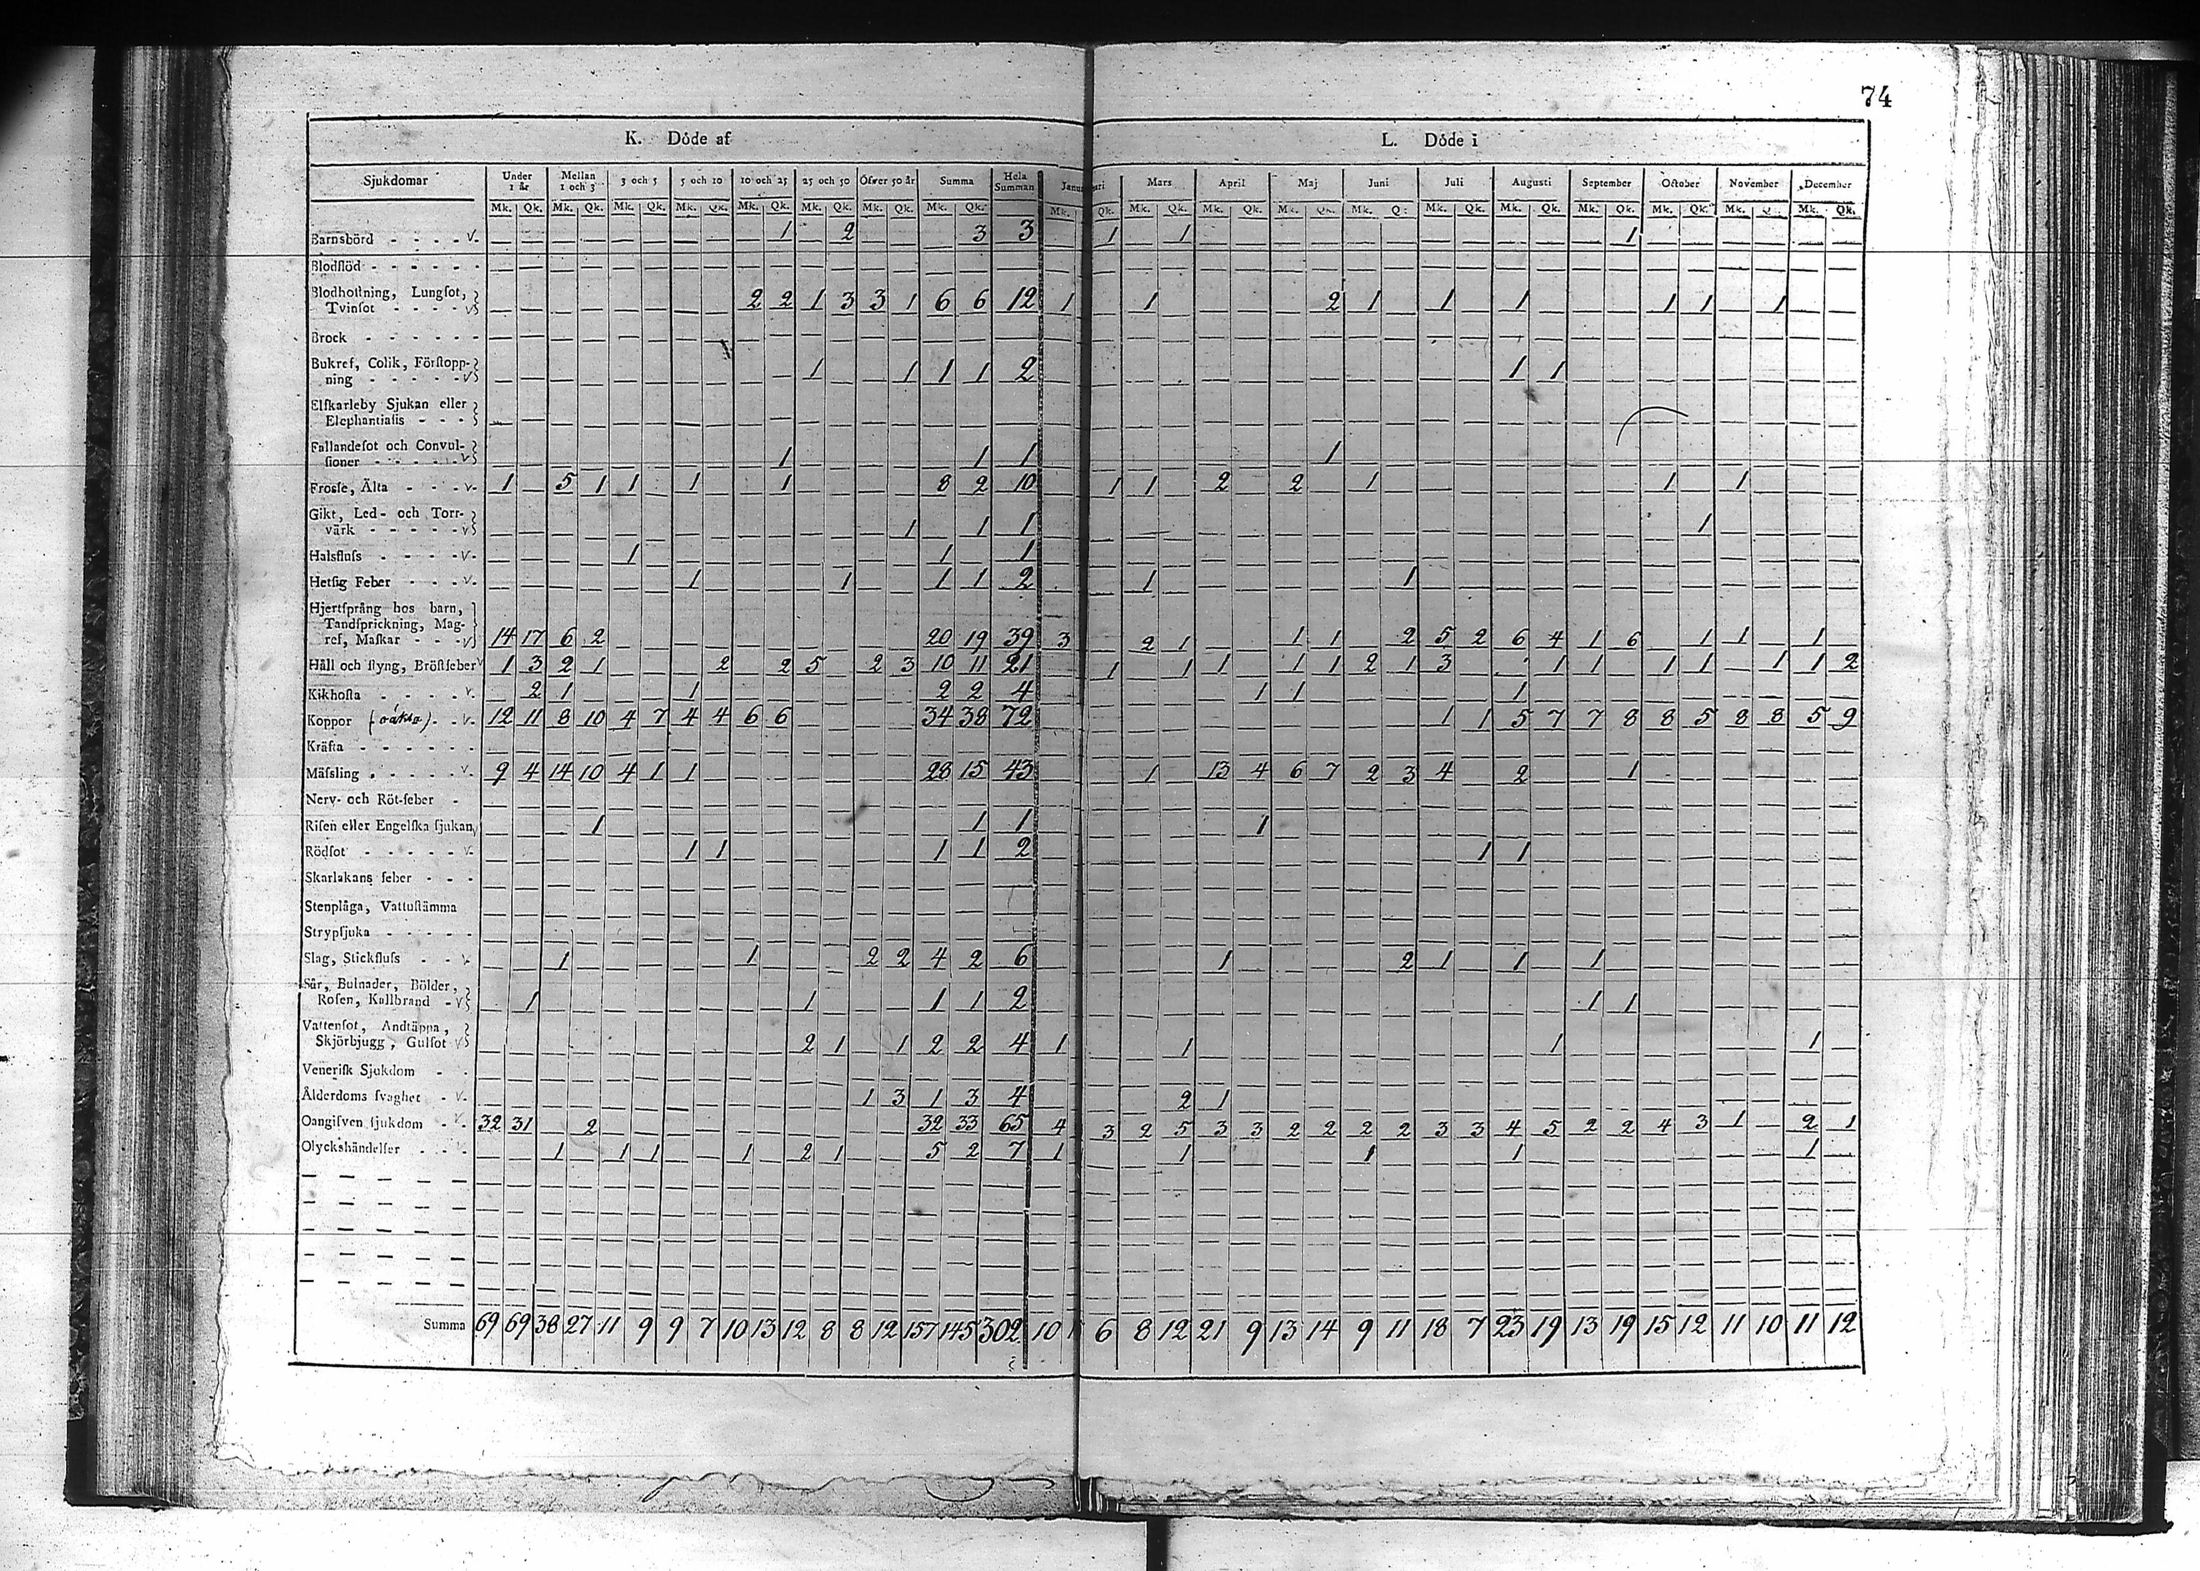 74
K. Döde af L. Döde i
Sjukdomar Under 1 år Mellan 1 och 3 3 och 5 5 och 10 10 och 25 25 och 50 Öfwer 50 år Summa Hela Summan Mars April Maj Juni Juli Augusti September October November December
Mk. Qk. Mk. Qk. Mk. Qk. Mk. Qk. Mk. Qk. Mk. Qk. Mk. Qk. Mk. Qk. Mk. Qk. Mk. Qk. Mk. Qk. Mk. Mk. Mk. Qk. Mk. Qk. Mk. Qk. Mk. Qk. Mk. Mk. Qk.
Barnsbörd - - - - v. 1 2 3 3 1 1 1
Blodflöd - - - - - -
Blodhostning, Lungsot,
Tvinsot - - - - v 2 2 1 3 3 1 6 6 12 1 1 2 1 1 1 1 1 1
Brock - - - - - -
Bukref, Colik, Förstopp-
ning - - - - - v 1 1 1 1 2 1 1
Elfkarleby Sjukan eller
Elephantiasis - - -
Fallandesot och Convul-
sioner - - - - - v 1 1 1 1
Frosse, Älta - - - v. 1 5 1 1 1 1 8 2 10 1 1 2 2 1 1 1
Gikt, Led- och Torr-
värk - - - - - v 1 1 1 1
Halsfluss - - - - v. 1 1 1
Hetsig Feber - - - v. 1 1 1 1 2 1 1
Hjertsprång hos barn,
Tandsprickning, Mag-
ref, Maskar - - - v 14 17 6 2 20 19 39 3 2 1 1 1 2 5 2 6 4 1 6 1 1 1
Håll och styng, Bröstfeber v 1 3 2 1 2 2 5 2 3 10 11 21 1 1 1 1 1 2 1 3 1 1 1 1 1 1 2
Kikhosta - - - - v. 2 1 1 2 2 4 1 1 1
Koppor - - v. 12 11 8 10 4 7 4 4 6 6 34 38 72 1 1 5 7 7 8 8 5 8 8 5 9
Kräfta - - - - - -
Mässling - - - - - v. 9 4 14 10 4 1 1 28 15 43 1 13 4 6 7 2 3 4 2 1
Nerv- och Röt-feber -
Risen eller Engelska sjukan v 1 1 1 1
Rödsot - - - - - v. 1 1 1 1 2 1 1
Skarlakans feber - - -
Stenplåga, Vattustämma
Strypsjuka - - - - -
Slag, Stickfluss - - v. 1 1 2 2 4 2 6 1 2 1 1 1
Sår, Bulnader, Bölder,
Rosen, Kallbrand - v 1 1 1 1 2 1 1
Vattensot, Andtäppa,
Skjörbjugg, Gulsot v 2 1 1 2 2 4 1 1 1 1
Venerisk Sjukdom - -
Ålderdoms svaghet - v. 1 3 1 3 4 2 1
Oangifven sjukdom - v. 32 31 2 32 33 65 4 3 2 5 3 3 2 2 2 2 3 3 4 5 2 2 4 3 1 2 1
Olyckshändelser - - - v. 1 1 1 1 2 1 5 2 7 1 1 1 1 1
Summa 69 69 38 27 11 9 9 7 10 13 12 8 8 12 157 145 302 10 6 8 12 21 9 13 14 9 11 18 7 23 19 13 19 15 12 11 10 11 12